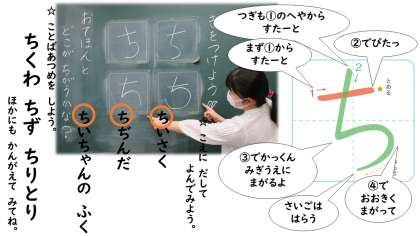 ちいさく
ちぢんだ
ちいちゃんの ふく
☆ こえに だして
よんでみよう。
☆ ことばあつめを しよう。
ちくわ ちず ちりとり
ほかにも かんがえて みてね。
をつけよう
ち
ち
ち
ち
おてほんと
どこがちがうかな?
つぎも①のへやから
すたーと
まず①から
すたーと
②でぴたっ
1
2
とめる
③でかっくん
みぎうえに
まがるよ
④で
おおきく
まがって
さいごは
はらう